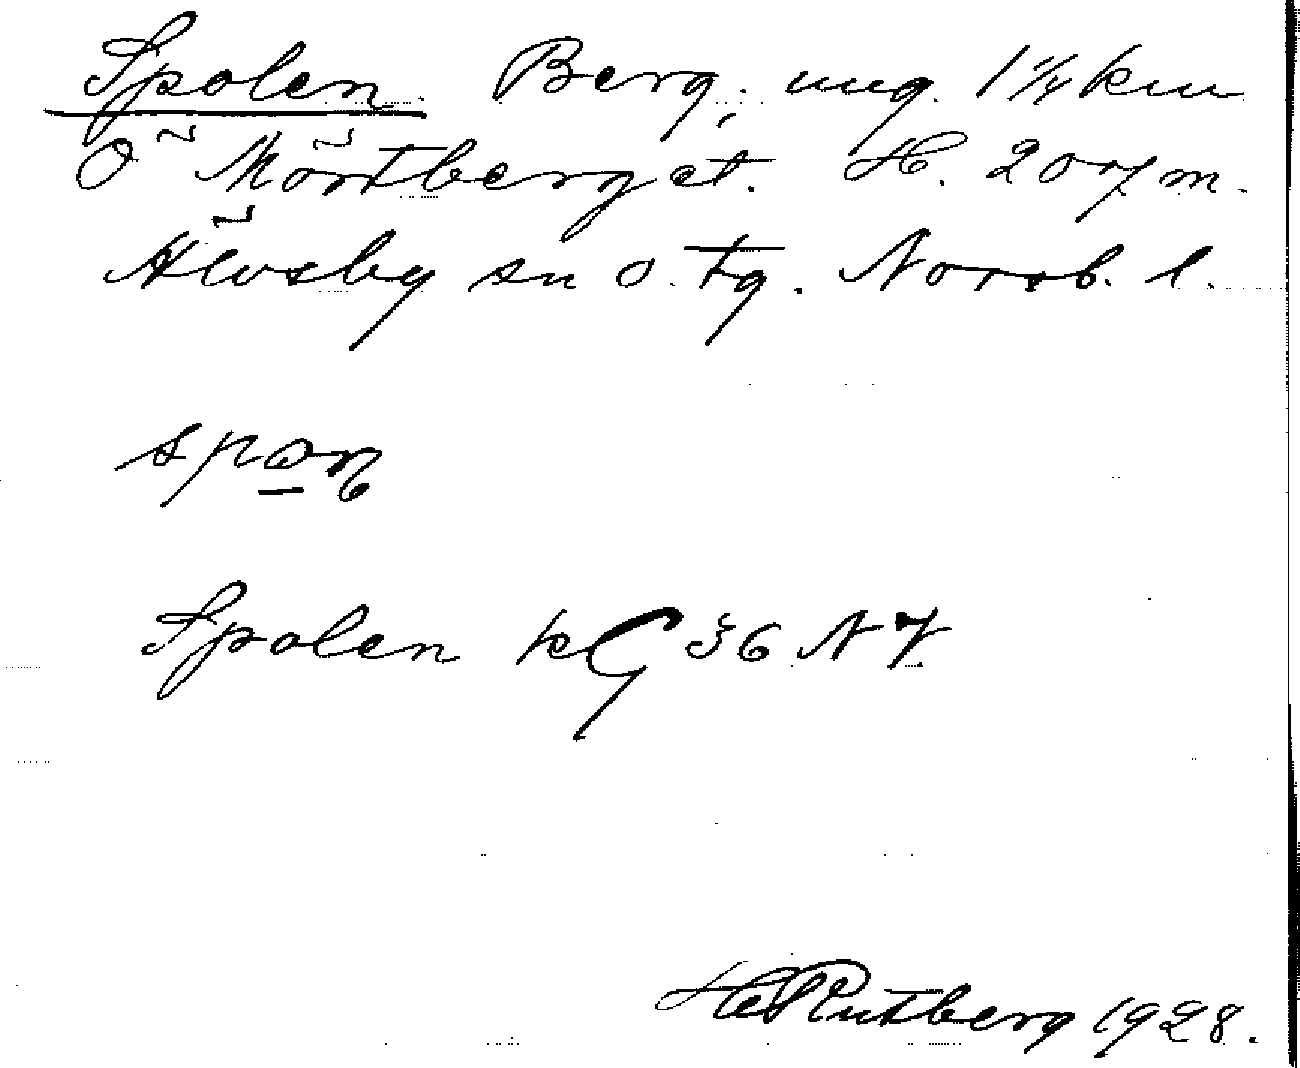 Spolen Berg, ung. 1 1/4 km
Ö Mörtberget. H. 207 m.
Älvsby sn o. tg. Norrb. l.
Spolen kG 36 N V
H Rutberg 1928.